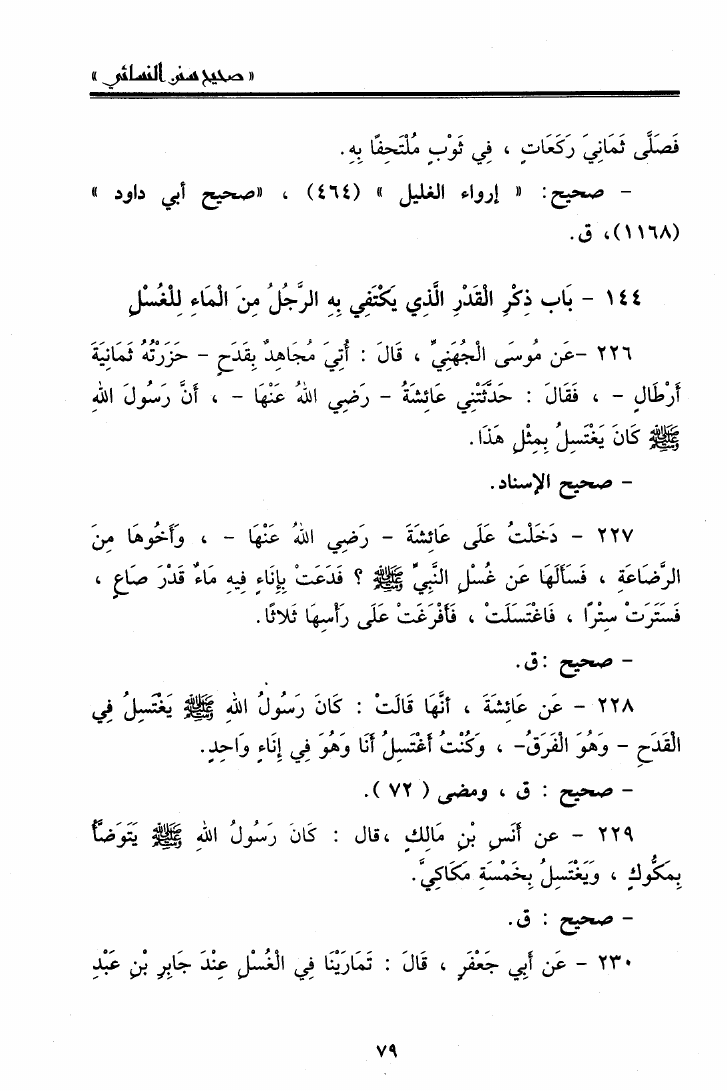 « صحيح سنن النسائي »
فَصَلَّى ثَمَانِيَ رَكَعَاتٍ ، فِي ثَوْبٍ مُلْتَحِفًا بِهِ.
– صحيح: « إرواء الغليل » (٤٦٤) ، «صحيح أبي داود »
(١١٦٨)، ق.
١٤٤ – بَاب ذِكْرِ الْقَدْرِ الَّذِي يَكْتَفِي بِهِ الرَّجُلُ مِنَ الْمَاءِ لِلْغُسْلِ
٢٢٦ –عَن مُوسَى الْجُهَنِيِّ ، قَالَ : أُتِيَ مُجَاهِدٌ بِقَدَحٍ – حَزَرْتُهُ ثَمَانِيَةَ
أَرْطَالٍ – ، فَقَالَ : حَدَّثَتْنِي عَائِشَةُ – رَضِي اللهُ عَنْهَا – ، أَنَّ رَسُولَ اللهِ
ﷺ كَانَ يَغْتَسِلُ بِمِثْلِ هَذَا.
– صحيح الإسناد.
٢٢٧ – دَخَلْتُ عَلَى عَائِشَةَ – رَضِي اللهُ عَنْهَا – ، وَأَخُوهَا مِنَ
الرَّضَاعَةِ ، فَسَأَلَهَا عَن غُسْلِ النَّبِيِّ ﷺ ؟ فَدَعَتْ بِإِنَاءٍ فِيهِ مَاءٌ قَدْرَ صَاعٍ ،
فَسَتَرَتْ سِتْرًا ، فَاغْتَسَلَتْ ، فَأَفْرَغَتْ عَلَى رَأْسِهَا ثَلاثًا.
– صحيح :ق.
٢٢٨ – عَن عَائِشَةَ ، أَنَّهَا قَالَتْ : كَانَ رَسُولُ اللهِ ﷺ يَغْتَسِلُ فِي
الْقَدَحِ – وَهُوَ الْفَرَقُ– ، وَكُنْتُ أَغْتَسِلُ أَنَا وَهُوَ فِي إِنَاءٍ وَاحِدٍ.
– صحيح : ق ، ومضى ( ٧٢ ).
٢٢٩ – عن أَنَسِ بْنِ مَالِكٍ ،قال : كَانَ رَسُولُ اللهِ ﷺ يَتَوَضَّأُ
بِمَكُّوكٍ ، وَيَغْتَسِلُ بِخَمْسَةِ مَكَاكِيَّ.
– صحيح : ق.
٢٣٠ – عَن أَبِي جَعْفَرٍ ، قَالَ : تَمَارَيْنَا فِي الْغُسْلِ عِنْدَ جَابِرِ بْنِ عَبْدِ
٧٩